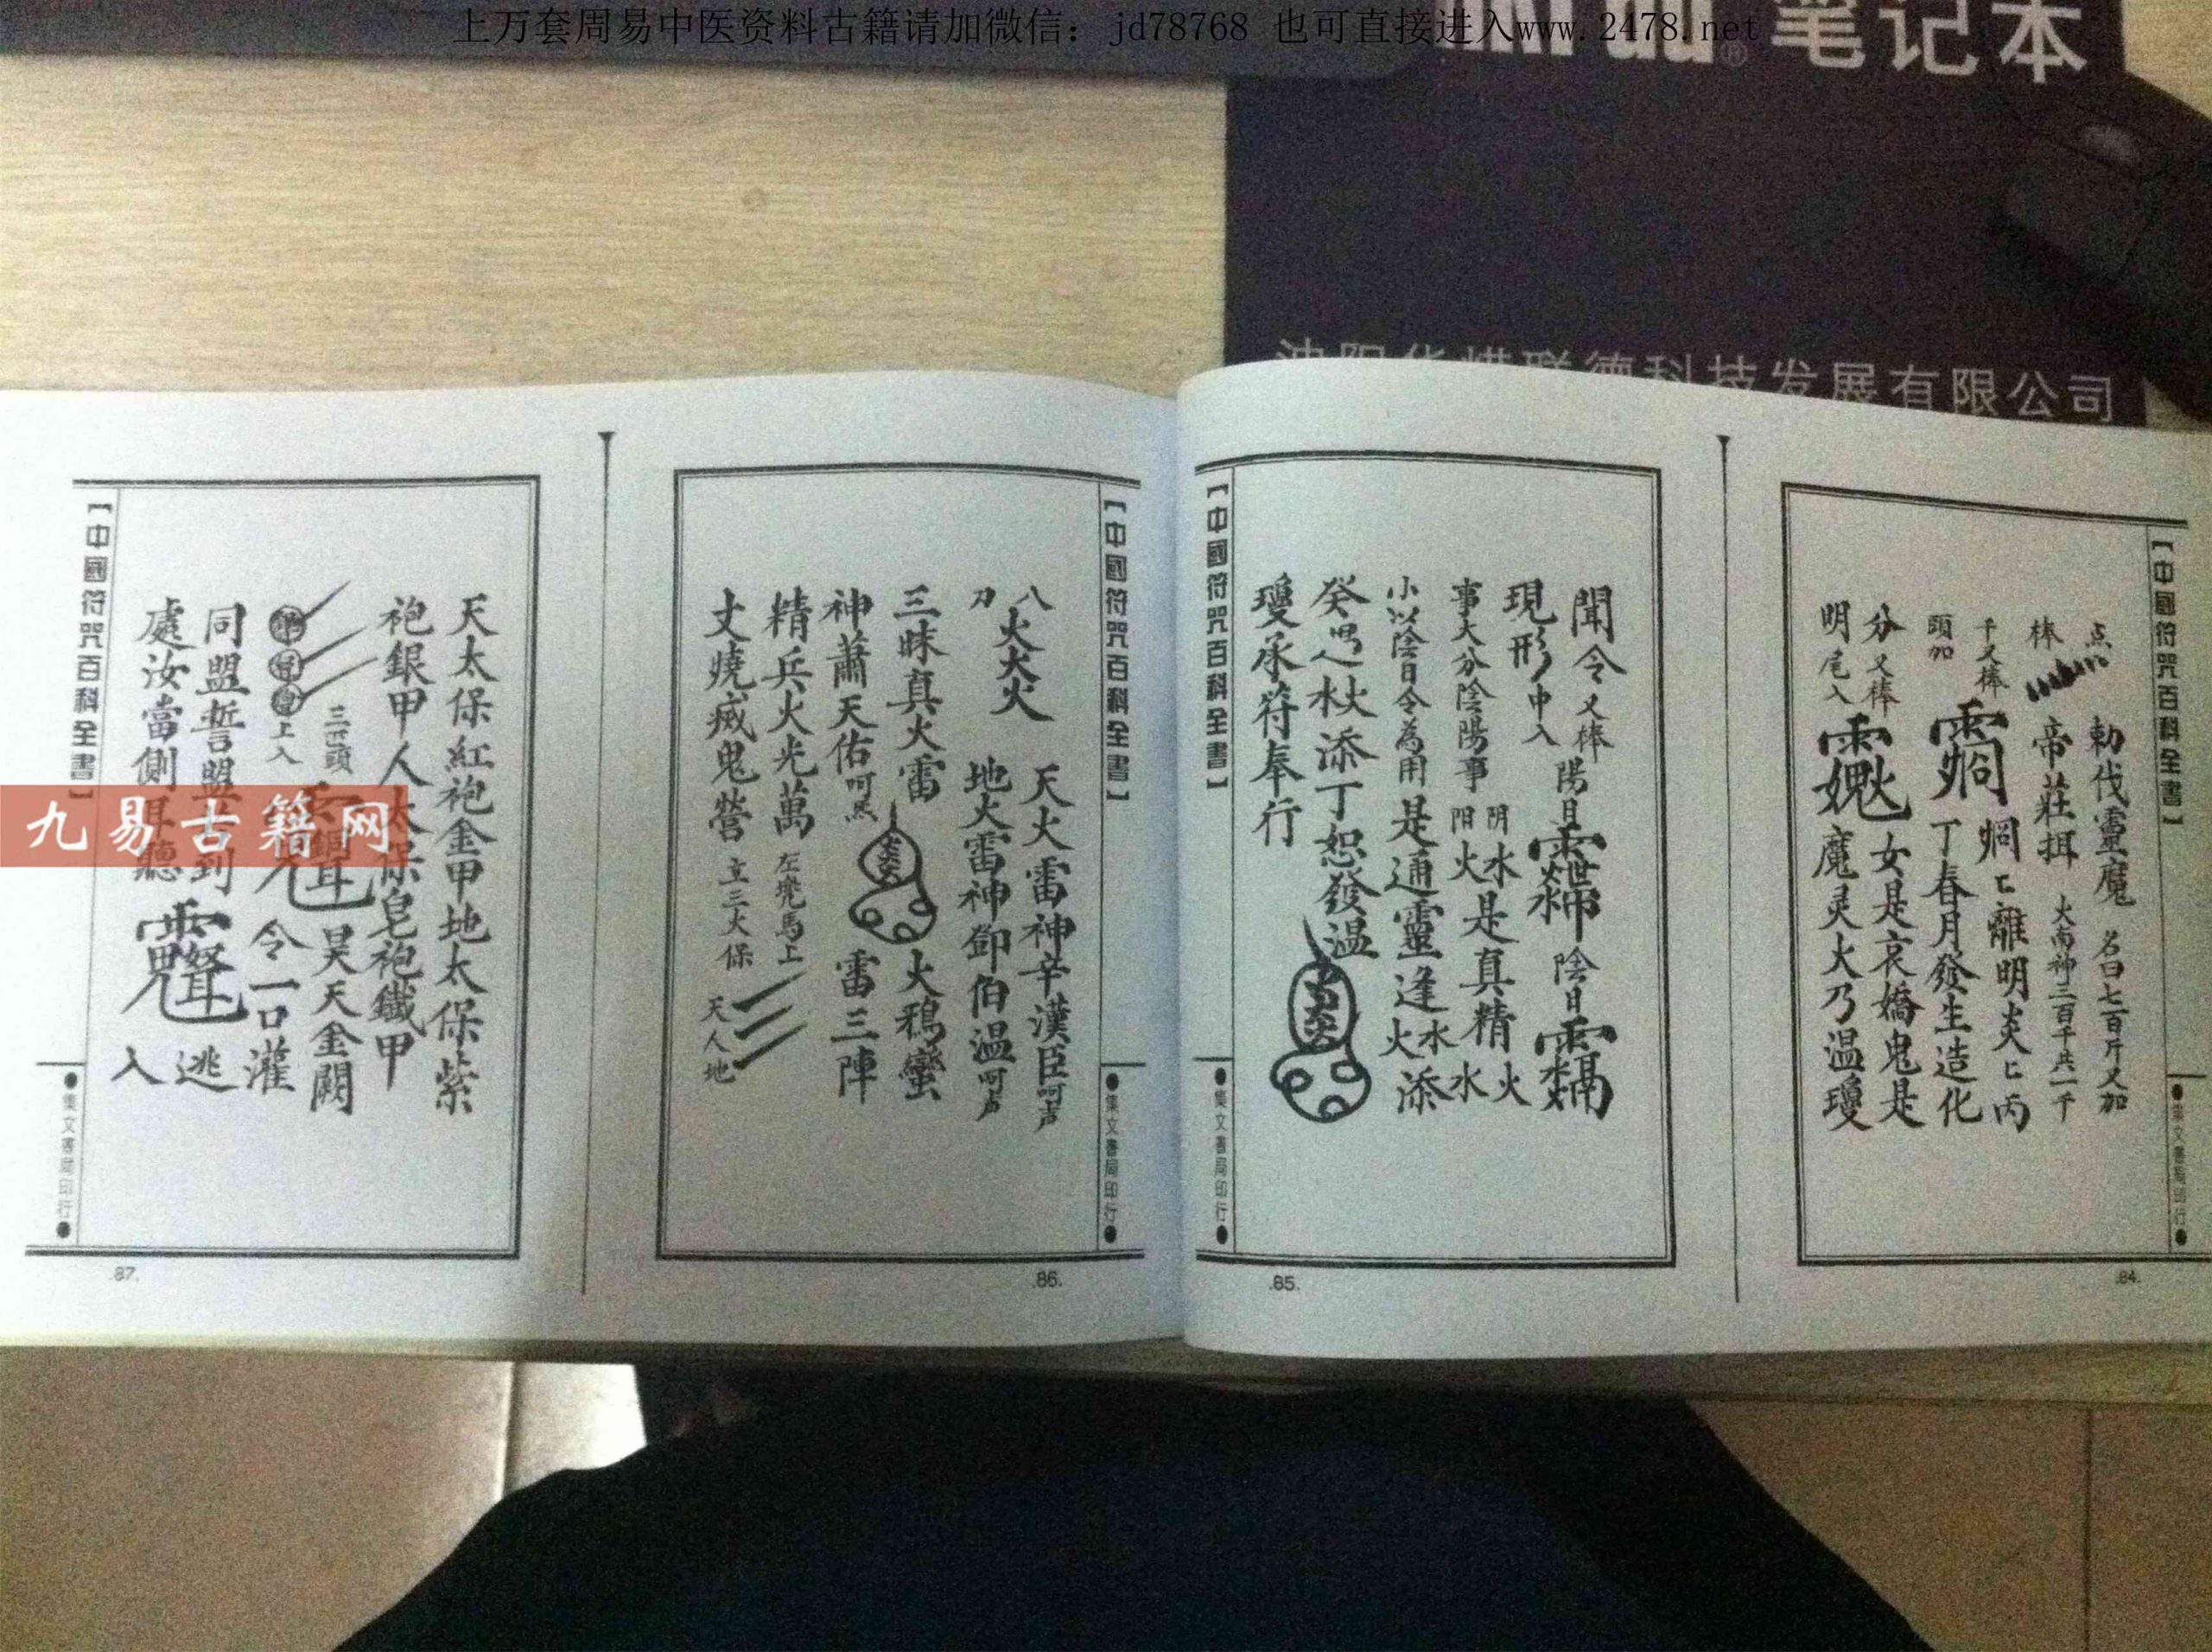 上万套周易中医资料古籍请加微信：jd78768 也可直接进入www.2478.net
笔记本
科技发展有限公司
【中國符咒百科全書】
点
勅伐靈魔 名曰七百斤又加
棒
帝莊 火南神二百千共一千
千又棒
離明炎匕丙
頭加
丁春月發生造化
分又棒
女是哀嬌鬼是
明尾入
魔灵火乃温瓊
●集文書局印行●
.84.
聞令又棒陽日
陰日
現形中入
阴水是真精火
阳火
水
事大分陰陽事
小以陰日令為用是通靈逢水火添
癸 水火添丁恕發温
瓊承符奉行
【中國符咒百科全書】
●集文書局印行●
.85.
【中國符咒百科全書】
八
刀
火火火
天火雷神辛漢臣呵声
地火雷神鄧伯溫呵声
三昧真火雷
火鴉蠻
神蕭天佑呵炁
雷三陣
精兵火光萬 左堯馬上
丈燒瘟鬼營 立三太保
天人地
●集文書局印行●
.86.
天太保紅袍金甲地太保紫
袍銀甲人太保皂袍鐵甲
三匕頭
昊天金闕
上入
令一口灌
同盟誓盟 到
逃
處汝當側耳聽
入
【中國符咒百科全書】
●集文書局印行●
.87.
九易古籍网